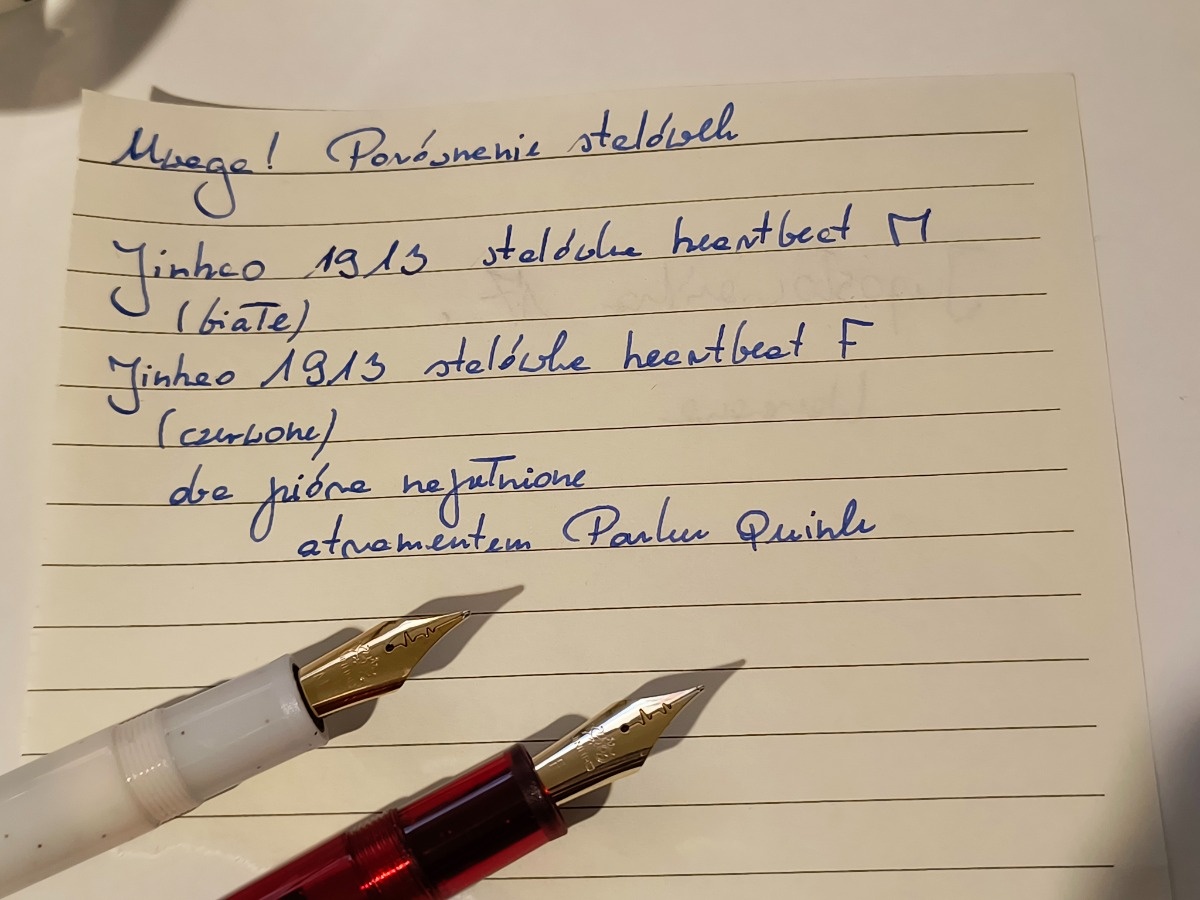 Uwaga! Porównanie stalówek
Jinhao 1913 stalówka heartbeat M
(białe)
Jinhao 1913 stalówka heartbeat F
(czerwone)
oba pióra napełnione
atramentem Parker Quink